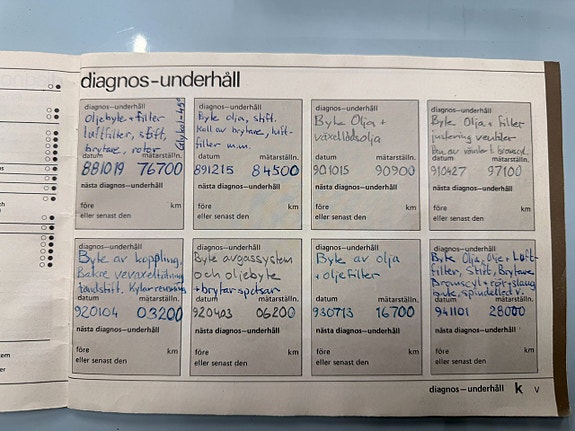 diagnos-underhåll
diagnos-underhåll
oljebyte + filter
luftfilter, stift,
brytare, rotor
Glykol -45°
datum mätarställn.
881019 76700
nästa diagnos-underhåll
före km
eller senast den
diagnos-underhåll
Byte olja, stift.
Koll av brytare, luft-
filter m.m.
datum mätarställn.
891215 84500
nästa diagnos-underhåll
före km
eller senast den
diagnos-underhåll
Byte Olja +
växellådsolja
datum mätarställn.
901015 90900
nästa diagnos-underhåll
före km
eller senast den
diagnos-underhåll
Byte Olja + filter
justering ventiler
av vänster
datum mätarställn.
910427 97100
nästa diagnos-underhåll
före km
eller senast den
diagnos-underhåll
Byte av koppling,
Bakre vevaxeltätning
tändstift. Kylarrensning
datum mätarställn.
920104 03200
nästa diagnos-underhåll
före km
eller senast den
diagnos-underhåll
Byte avgassystem
och oljebyte
+ brytarspetsar
datum mätarställn.
920403 06200
nästa diagnos-underhåll
före km
eller senast den
diagnos-underhåll
Byte av olja
+ oljefilter
datum mätarställn.
930713 16700
nästa diagnos-underhåll
före km
eller senast den
diagnos-underhåll
Byte Olja, olje + Luft-
filter, Stift, Brytare
Bromscyl + rör + slang
spindelled v.
datum mätarställn.
941101 28000
nästa diagnos-underhåll
före km
eller senast den
diagnos-underhåll k V